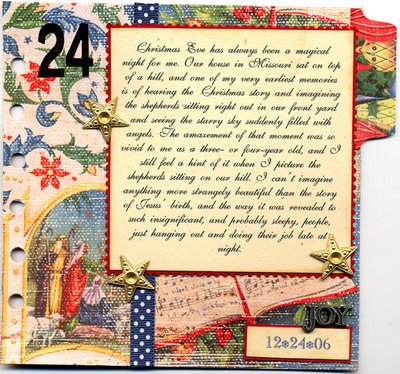 24
Christmas Eve has always been a magical
night for me. Our house in Missouri sat on top
of a hill, and one of my very earliest memories
is of hearing the Christmas story and imagining
the shepherds sitting right out in our front yard
and seeing the starry sky suddenly filled with
angels. The amazement of that moment was so
vivid to me as a three- or four-year old, and I
still feel a hint of it when I picture the
shepherds sitting on our hill. I can't imagine
anything more strangely beautiful than the story
of Jesus' birth, and the way it was revealed to
such insignificant, and probably sleepy, people,
just hanging out and doing their job late at
night.
JOY
12*24*06